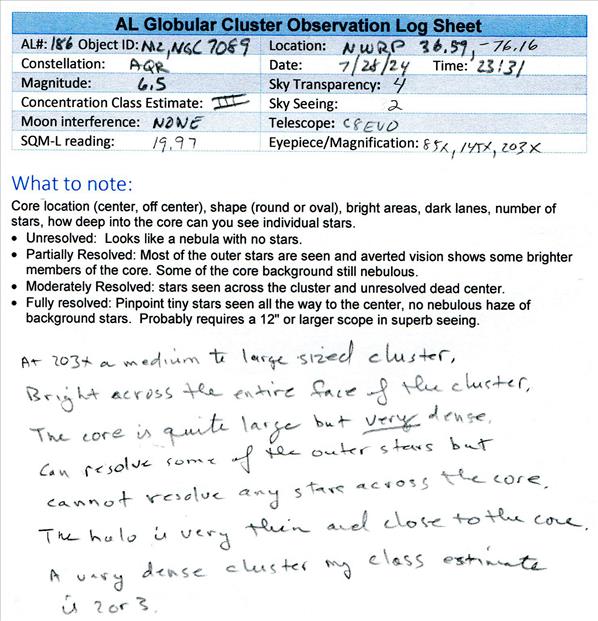 AL Globular Cluster Observation Log Sheet
AL#: 186 Object ID: M2, NGC 7089 Location: NWRP 36.59, -76.16
Constellation: AQR Date: 7/28/24 Time: 23:31
Magnitude: 6.5 Sky Transparency: 4
Concentration Class Estimate: III Sky Seeing: 2
Moon interference: NONE Telescope: C8EVO
SQM-L reading: 19.97 Eyepiece/Magnification: 85X, 145X, 203X
What to note:
Core location (center, off center), shape (round or oval), bright areas, dark lanes, number of
stars, how deep into the core can you see individual stars.
• Unresolved: Looks like a nebula with no stars.
• Partially Resolved: Most of the outer stars are seen and averted vision shows some brighter
members of the core. Some of the core background still nebulous.
• Moderately Resolved: stars seen across the cluster and unresolved dead center.
• Fully resolved: Pinpoint tiny stars seen all the way to the center, no nebulous haze of
background stars. Probably requires a 12" or larger scope in superb seeing.
At 203x a medium to large sized cluster,
Bright across the entire face of the cluster.
The core is quite large but very dense.
Can resolve some of the outer stars but
cannot resolve any stars across the core.
The halo is very thin and close to the core.
A very dense cluster my class estimate
is 2 or 3.